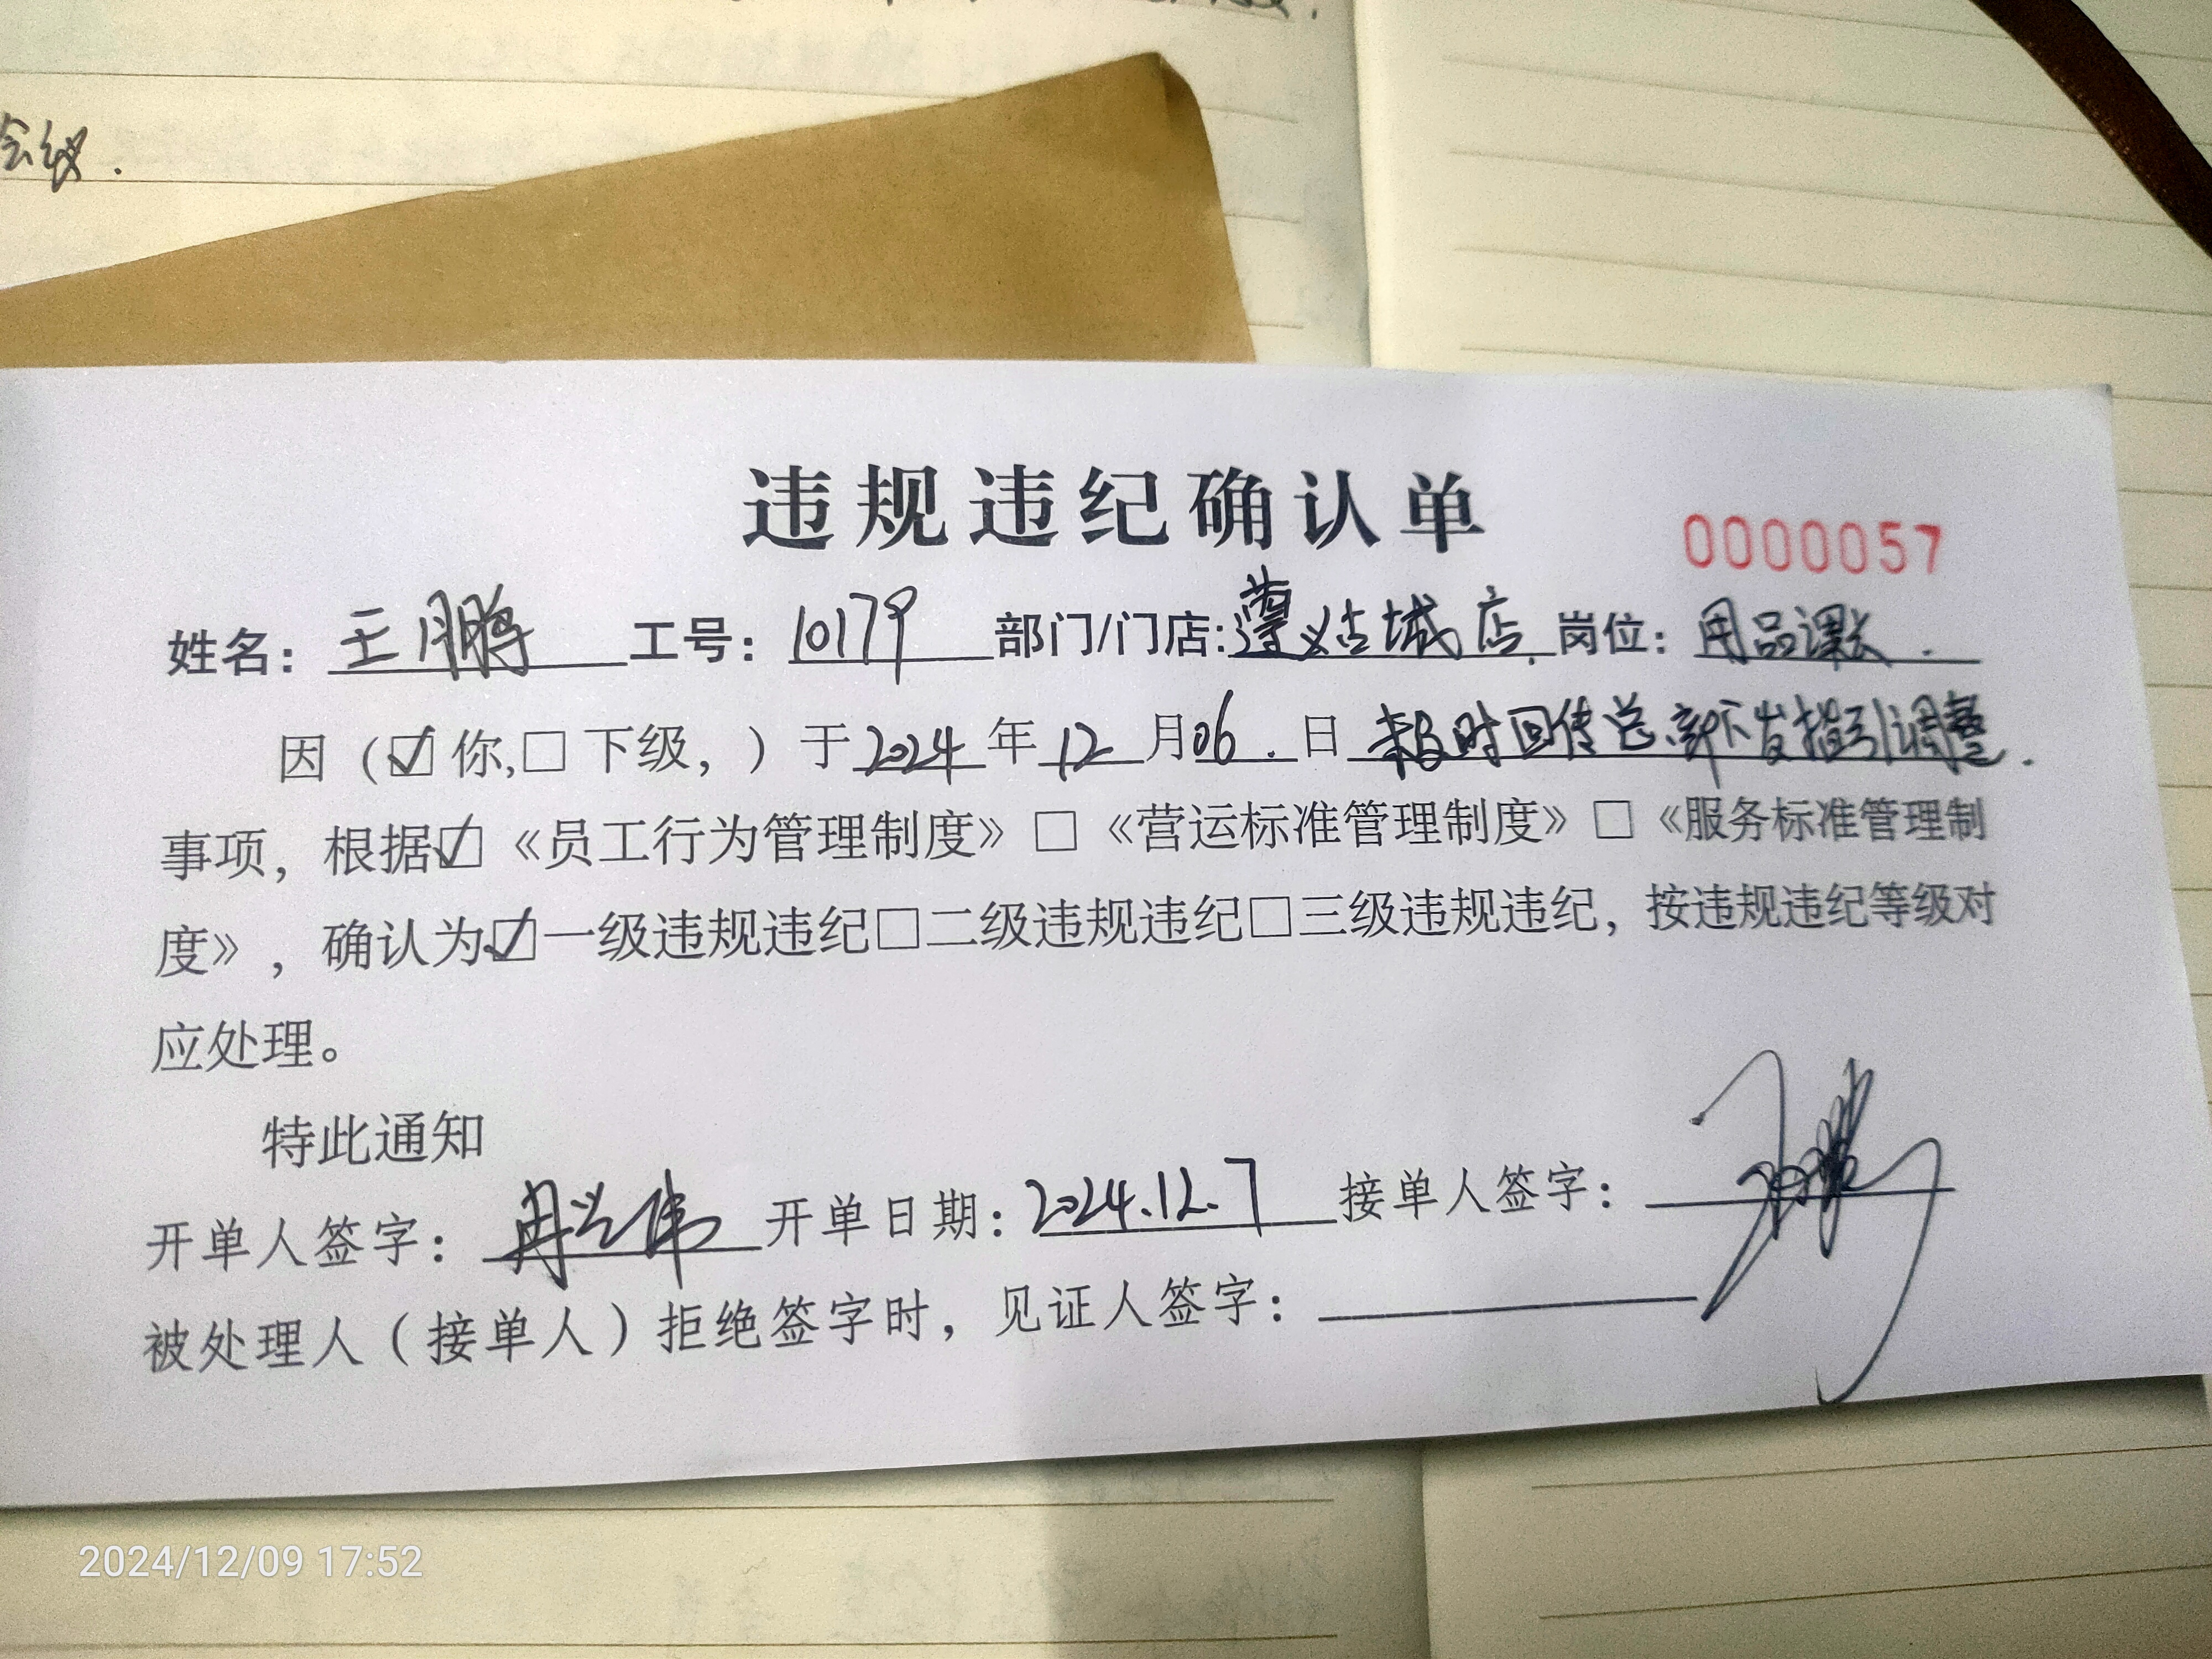 会议.
违规违纪确认单
0000057
姓名: 王鹏 工号: 10179 部门/门店: 遵义古城店. 岗位: 用品课长.
因（☑你,□下级，）于2024年12月06.日未及时回传总部下发指引调整.
事项，根据☑《员工行为管理制度》□《营运标准管理制度》□《服务标准管理制
度》，确认为☑一级违规违纪□二级违规违纪□三级违规违纪，按违规违纪等级对
应处理。
特此通知
开单人签字: 冉兴伟 开单日期: 2024.12.7 接单人签字: 王鹏
被处理人（接单人）拒绝签字时，见证人签字:
2024/12/09 17:52